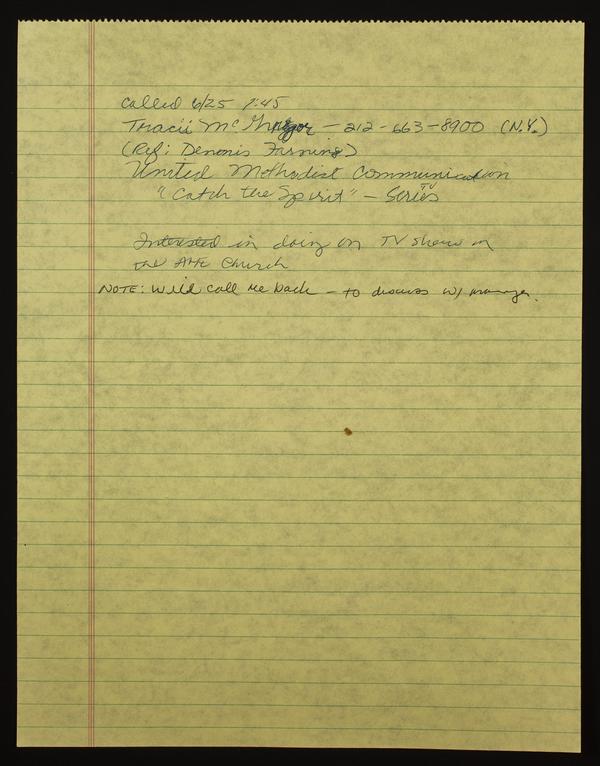 Called 6/25 1:45
Tracii McGregor - 212-663-8900 (N.Y.)
(Ref: Dennis
United Methodist Communication
"Catch the Spirit" - TV Series
Interested in doing on TV show on
the AME Church
NOTE: Will call me back - to discuss w/ manager.